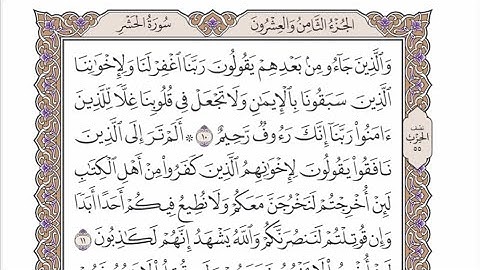 الجزء الثامن والعشرون
سورة الحشر
وَٱلَّذِينَ جَآءُو مِنۢ بَعْدِهِمْ يَقُولُونَ رَبَّنَا ٱغْفِرْ لَنَا وَلِإِخْوَٰنِنَا
ٱلَّذِينَ سَبَقُونَا بِٱلْإِيمَٰنِ وَلَا تَجْعَلْ فِى قُلُوبِنَا غِلًّا لِّلَّذِينَ
ءَامَنُوا۟ رَبَّنَآ إِنَّكَ رَءُوفٌ رَّحِيمٌ ١٠ ۞ أَلَمْ تَرَ إِلَى ٱلَّذِينَ
نصف الحزب ٥٥
نَافَقُوا۟ يَقُولُونَ لِإِخْوَٰنِهِمُ ٱلَّذِينَ كَفَرُوا۟ مِنْ أَهْلِ ٱلْكِتَٰبِ
لَئِنْ أُخْرِجْتُمْ لَنَخْرُجَنَّ مَعَكُمْ وَلَا نُطِيعُ فِيكُمْ أَحَدًا أَبَدًا
وَإِن قُوتِلْتُمْ لَنَنصُرَنَّكُمْ وَٱللَّهُ يَشْهَدُ إِنَّهُمْ لَكَٰذِبُونَ ١١